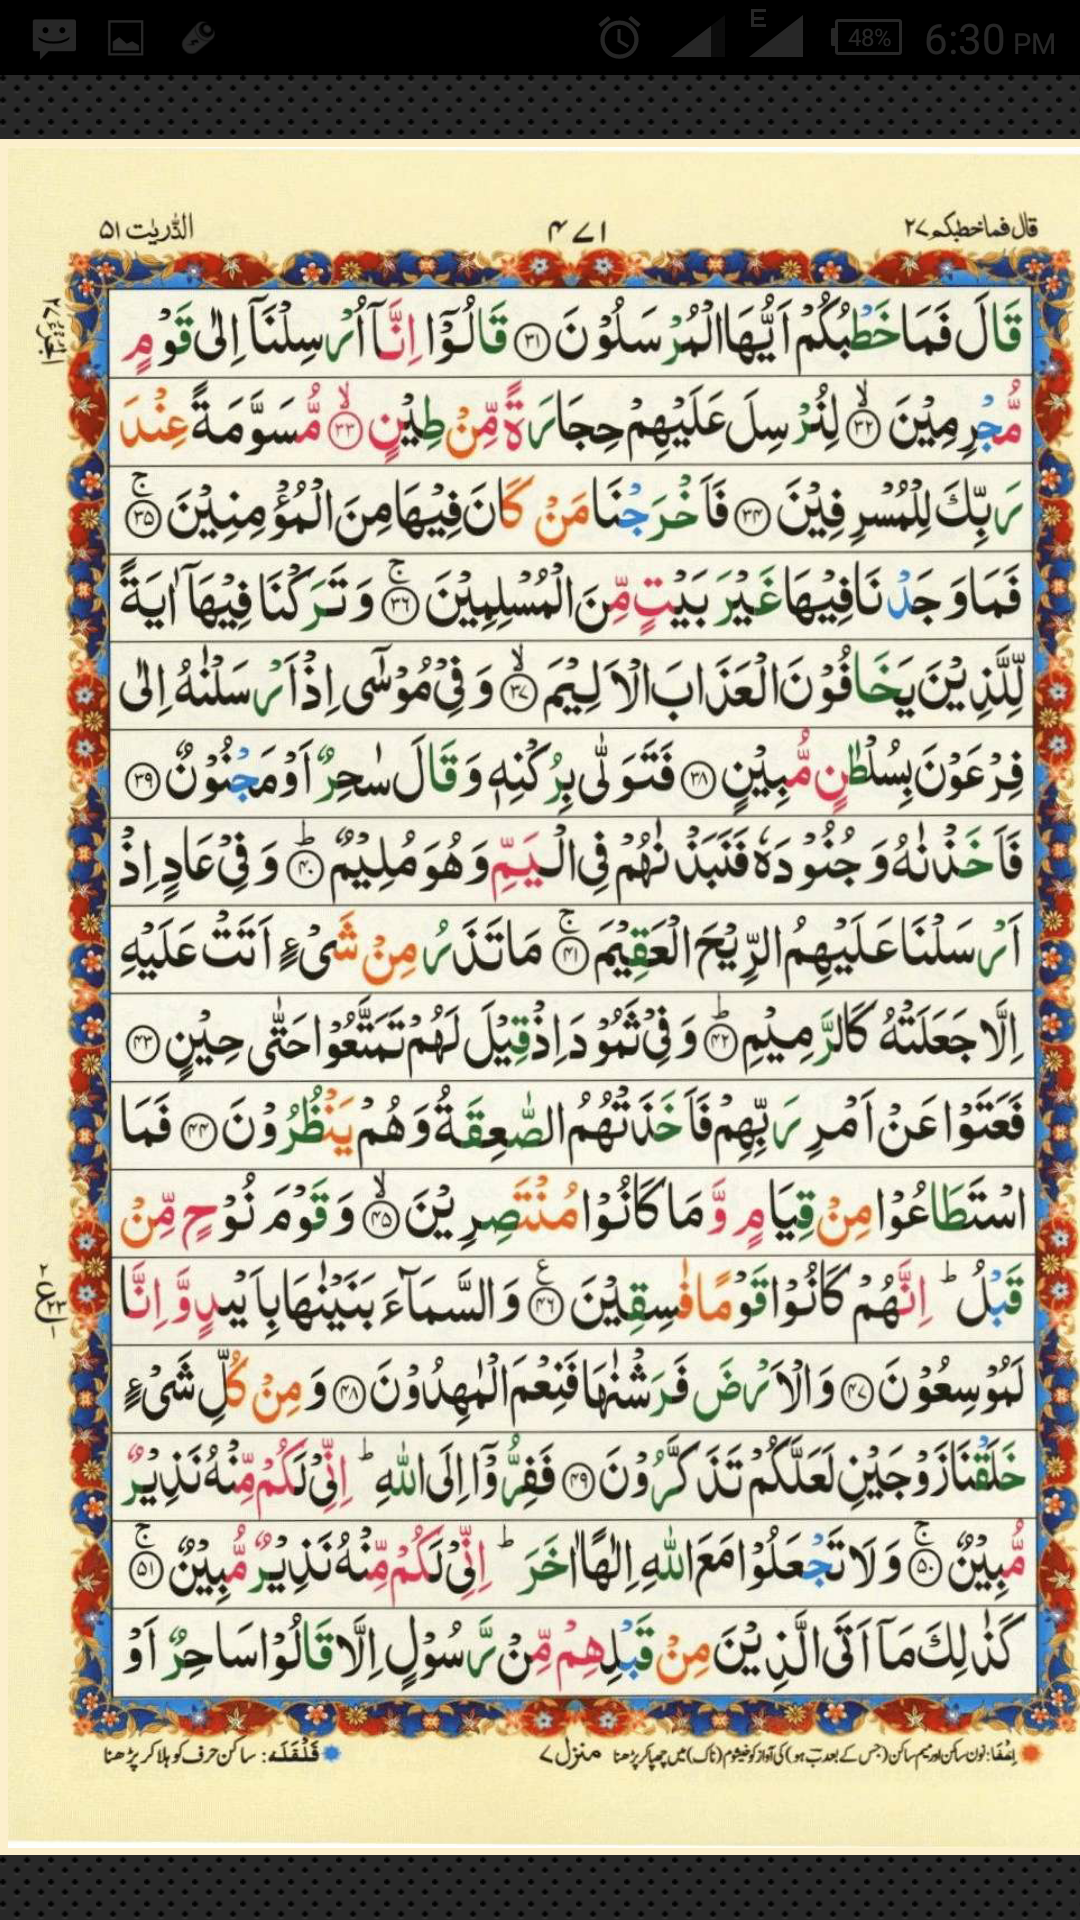 E 48% 6:30 PM
قال فما خطبکم ۲۷ ۴۷۱ الذّٰریٰت ۵۱
قَالَ فَمَا خَطْبُكُمْ اَيُّهَا الْمُرْسَلُوْنَ ۳۱ قَالُوْۤا اِنَّاۤ اُرْسِلْنَاۤ اِلٰى قَوْمٍ
مُّجْرِمِيْنَ ۳۲ۙ لِنُرْسِلَ عَلَيْهِمْ حِجَارَةً مِّنْ طِيْنٍ ۳۳ۙ مُّسَوَّمَةً عِنْدَ
رَبِّكَ لِلْمُسْرِفِيْنَ ۳۴ فَاَخْرَجْنَا مَنْ كَانَ فِيْهَا مِنَ الْمُؤْمِنِيْنَ ۳۵ۚ
فَمَا وَجَدْنَا فِيْهَا غَيْرَ بَيْتٍ مِّنَ الْمُسْلِمِيْنَ ۳۶ۚ وَ تَرَكْنَا فِيْهَاۤ اٰيَةً
لِّلَّذِيْنَ يَخَافُوْنَ الْعَذَابَ الْاَلِيْمَ ۳۷ۙ وَ فِيْ مُوْسٰۤى اِذْ اَرْسَلْنٰهُ اِلٰى
فِرْعَوْنَ بِسُلْطٰنٍ مُّبِيْنٍ ۳۸ فَتَوَلّٰى بِرُكْنِهٖ وَ قَالَ سٰحِرٌ اَوْ مَجْنُوْنٌ ۳۹
فَاَخَذْنٰهُ وَ جُنُوْدَهٗ فَنَبَذْنٰهُمْ فِي الْيَمِّ وَ هُوَ مُلِيْمٌ ۴۰ؕ وَ فِيْ عَادٍ اِذْ
اَرْسَلْنَا عَلَيْهِمُ الرِّيْحَ الْعَقِيْمَ ۴۱ۚ مَا تَذَرُ مِنْ شَيْءٍ اَتَتْ عَلَيْهِ
اِلَّا جَعَلَتْهُ كَالرَّمِيْمِ ۴۲ؕ وَ فِيْ ثَمُوْدَ اِذْ قِيْلَ لَهُمْ تَمَتَّعُوْا حَتّٰى حِيْنٍ ۴۳
فَعَتَوْا عَنْ اَمْرِ رَبِّهِمْ فَاَخَذَتْهُمُ الصّٰعِقَةُ وَ هُمْ يَنْظُرُوْنَ ۴۴ فَمَا
اسْتَطَاعُوْا مِنْ قِيَامٍ وَّ مَا كَانُوْا مُنْتَصِرِيْنَ ۴۵ۙ وَ قَوْمَ نُوْحٍ مِّنْ
قَبْلُ ؕ اِنَّهُمْ كَانُوْا قَوْمًا فٰسِقِيْنَ ۴۶ع وَ السَّمَآءَ بَنَيْنٰهَا بِاَيْىدٍ وَّ اِنَّا
لَمُوْسِعُوْنَ ۴۷ وَ الْاَرْضَ فَرَشْنٰهَا فَنِعْمَ الْمٰهِدُوْنَ ۴۸ وَ مِنْ كُلِّ شَيْءٍ
خَلَقْنَا زَوْجَيْنِ لَعَلَّكُمْ تَذَكَّرُوْنَ ۴۹ فَفِرُّوْۤا اِلَى اللّٰهِ ؕ اِنِّيْ لَكُمْ مِّنْهُ نَذِيْرٌ
مُّبِيْنٌ ۵۰ۚ وَ لَا تَجْعَلُوْا مَعَ اللّٰهِ اِلٰهًا اٰخَرَ ؕ اِنِّيْ لَكُمْ مِّنْهُ نَذِيْرٌ مُّبِيْنٌ ۵۱ۚ
كَذٰلِكَ مَاۤ اَتَى الَّذِيْنَ مِنْ قَبْلِهِمْ مِّنْ رَّسُوْلٍ اِلَّا قَالُوْا سَاحِرٌ اَوْ
اِخْفَا: نون ساکن اور میم ساکن (جس کے بعد ب ہو) کی آواز کو خیشوم (ناک) میں چھپا کر پڑھنا منزل ۷ قَلْقَلَہ: ساکن حرف کو ہلا کر پڑھنا